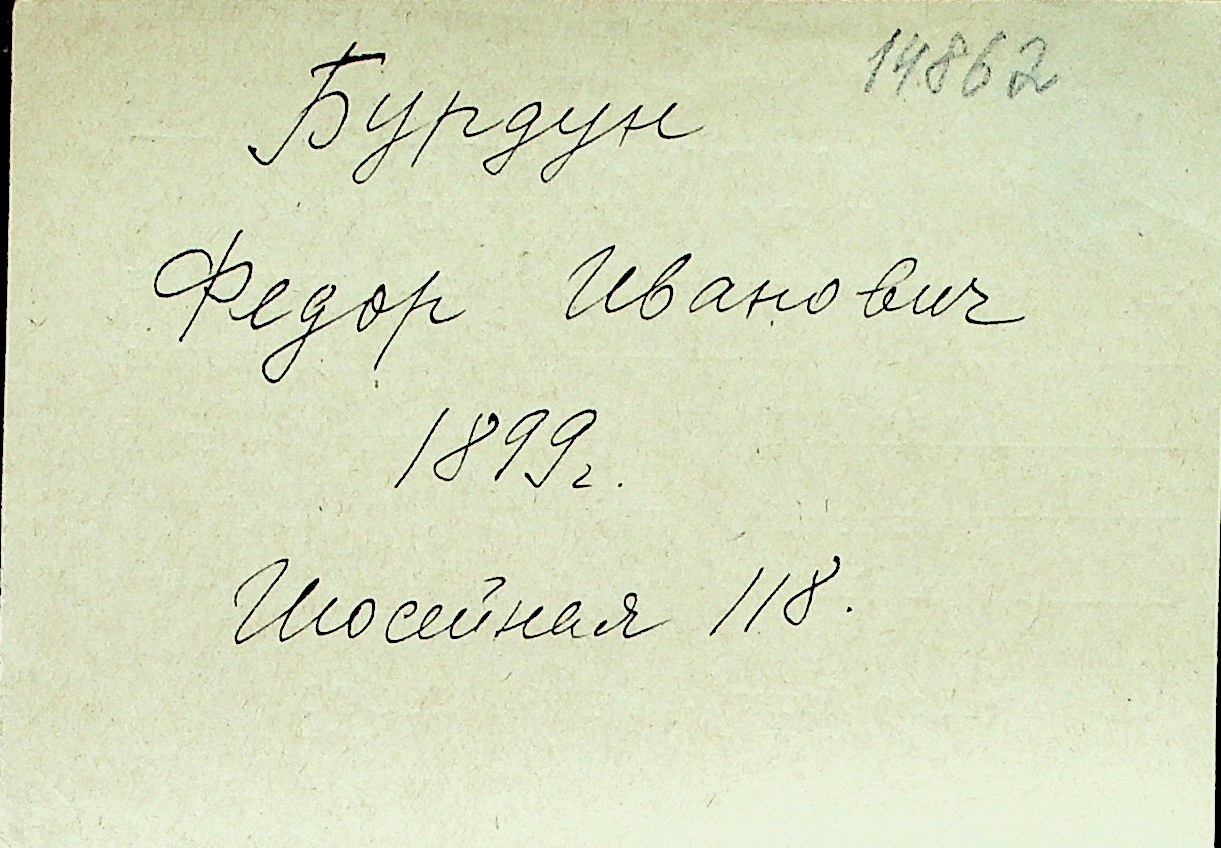 14862
Бурдун
Федор Иванович
1899г.
Шосейная 118.